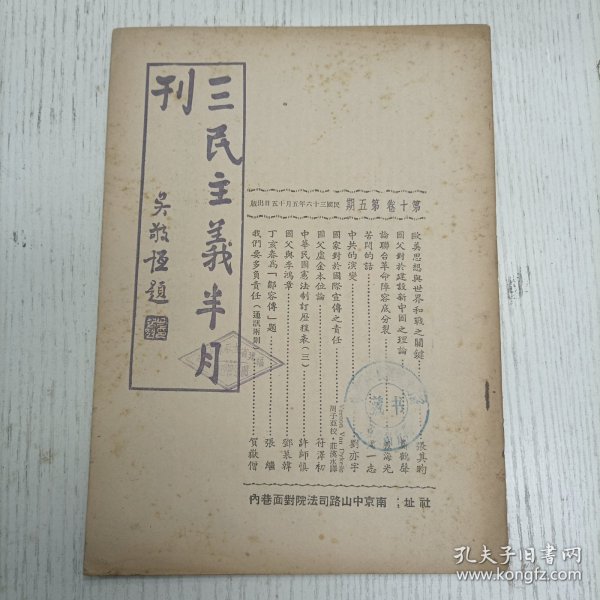 三民主義半月
刊
吳敬恆題
第十卷第五期
民國三十六年五月十五日出版
歐美思想與世界和戰之關鍵 張其昀
國父對於建設新中國之理論
論聯合革命陣容底分裂 海光
苦悶的話 一志
中共的演變 劉亦宇
國家對於國際宣傳之責任 Vernon Van Dyke著
周子亞校·莊溪水譯
國父虛金本位論 符澤初
中華民國憲法制訂歷程表(三) 許師慎
國父與李鴻章 鄧慕韓
丁亥春為「鄒容傳」題 張繼
我們要多負責任(通訊兩則) 賀嶽僧
社址:南京中山路司法院對面巷內
藏书
孔夫子旧书网
www.kongfz.com